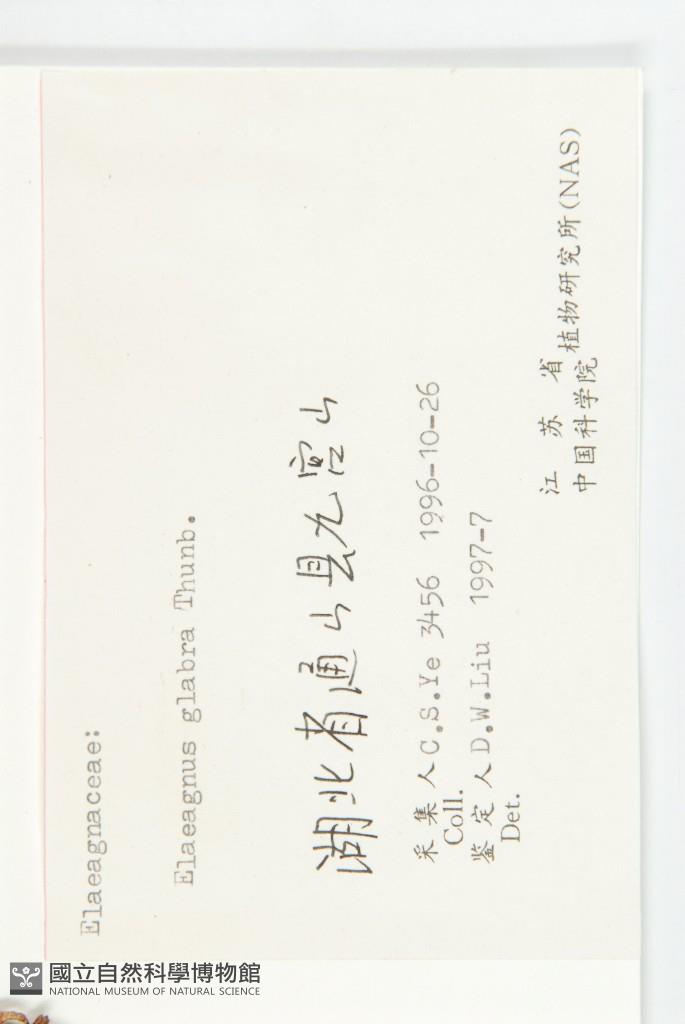 Elaeagnaceae:
Elaeagnus glabra Thunb.
湖北省通山县九宫山
采集人 C.S.Ye 3456 1996-10-26
Coll.
鉴定人 D.W.Liu 1997-7
Det.
江苏省
中国科学院 植物研究所(NAS)
國立自然科學博物館
NATIONAL MUSEUM OF NATURAL SCIENCE